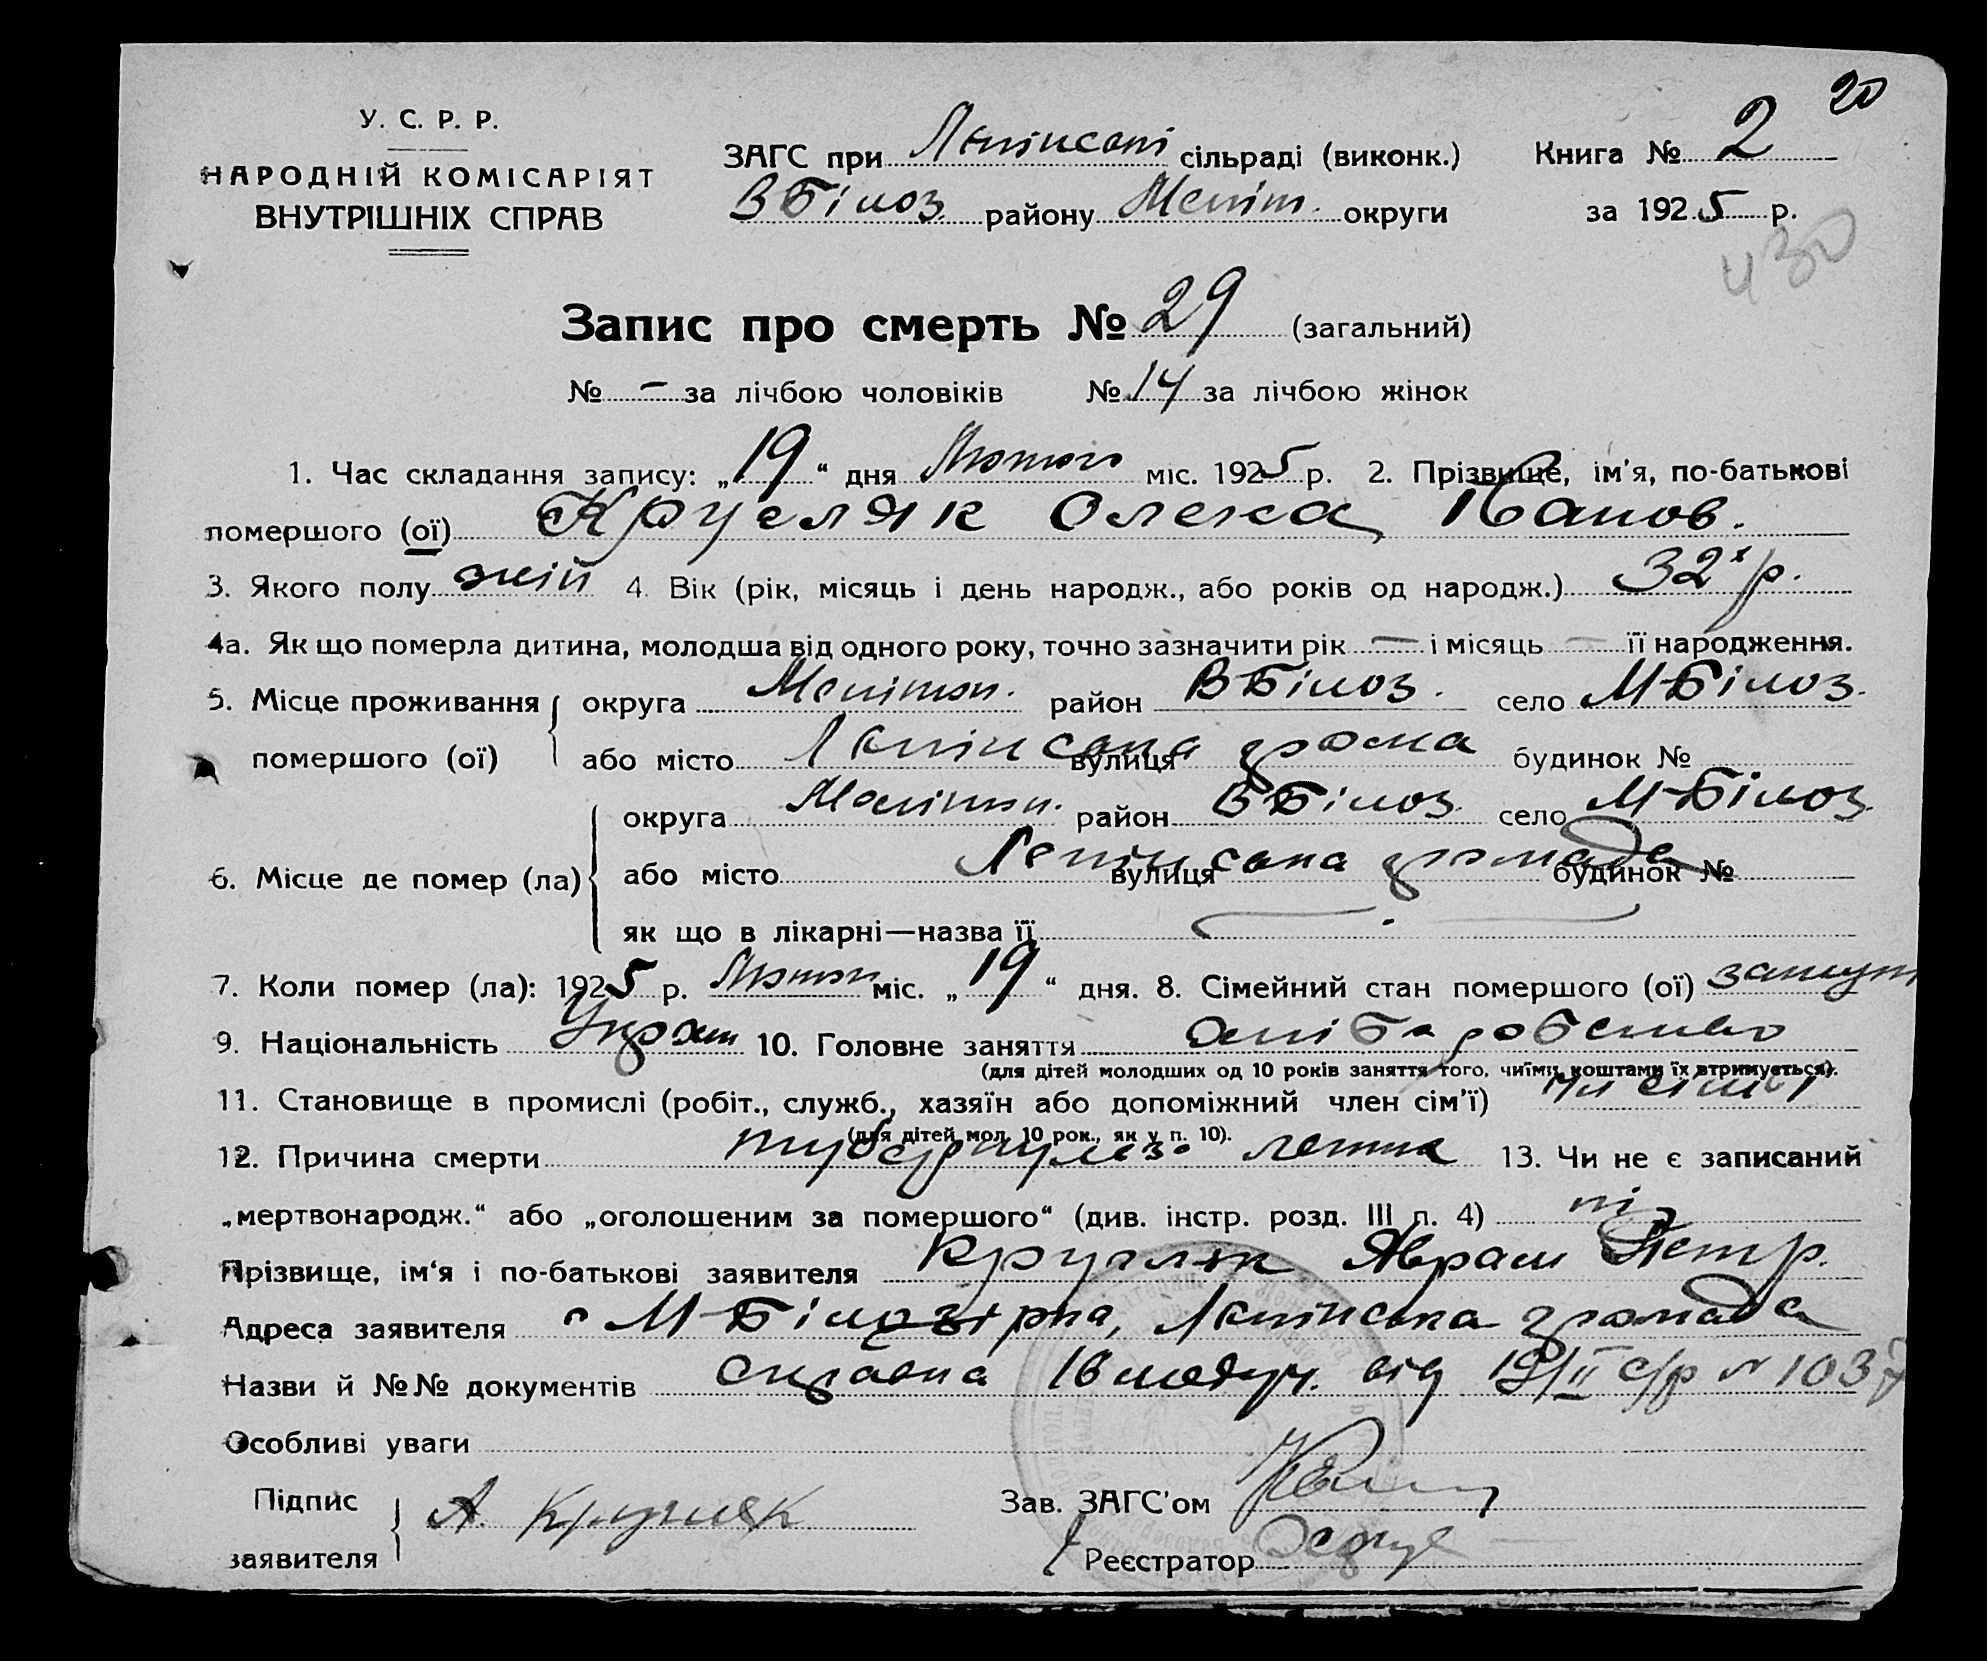 20
У. С. Р. Р.
НАРОДНІЙ КОМІСАРІЯТ
ВНУТРІШНІХ СПРАВ
ЗАГС при сільраді (виконк.) Книга № 2
ВБілоз. району Меліт. округи за 1925 р.
430
Запис про смерть № 29 (загальний)
№ – за лічбою чоловіків № 14 за лічбою жінок
1. Час складання запису: „19“ дня Лютого міс. 1925 р. 2. Прізвище, ім'я, по-батькові
помершого (ої) Кругляк Олекса Іванов.
3. Якого полу жій 4. Вік (рік, місяць і день народж., або років од народж.) 32х р.
4а. Як що померла дитина, молодша від одного року, точно зазначити рік — і місяць — її народження.
5. Місце проживання округа Мелітоп. район ВБілоз. село М-Білоз.
помершого (ої) або місто вулиця грома будинок №
округа Мелітоп. район ВБілоз. село М-Білоз.
6. Місце де помер (ла) або місто вулиця громада будинок №
як що в лікарні—назва її —
7. Коли помер (ла): 1925 р. міс. „19“ дня. 8. Сімейний стан помершого (ої)
9. Національність Україн 10. Головне заняття хліборобство
(для дітей молодших од 10 років заняття того, чиїми коштами їх втримується).
11. Становище в промислі (робіт., служб., хазяїн або допоміжний член сім'ї) чл сімї
(для дітей мол. 10 рок., як у п. 10).
12. Причина смерти туберкульоз легких 13. Чи не є записаний
„мертвонародж.“ або „оголошеним за помершого“ (див. інстр. розд. III п. 4) ні
Прізвище, ім'я і по-батькові заявителя Кругляк Аврам Петр.
Адреса заявителя с М-Білозірка, громада
Назви й №№ документів справка медуч. від 19/II с/р № 1037
Особливі уваги
Підпис
заявителя А. Кругляк
Зав. ЗАГС'ом
Реєстратор